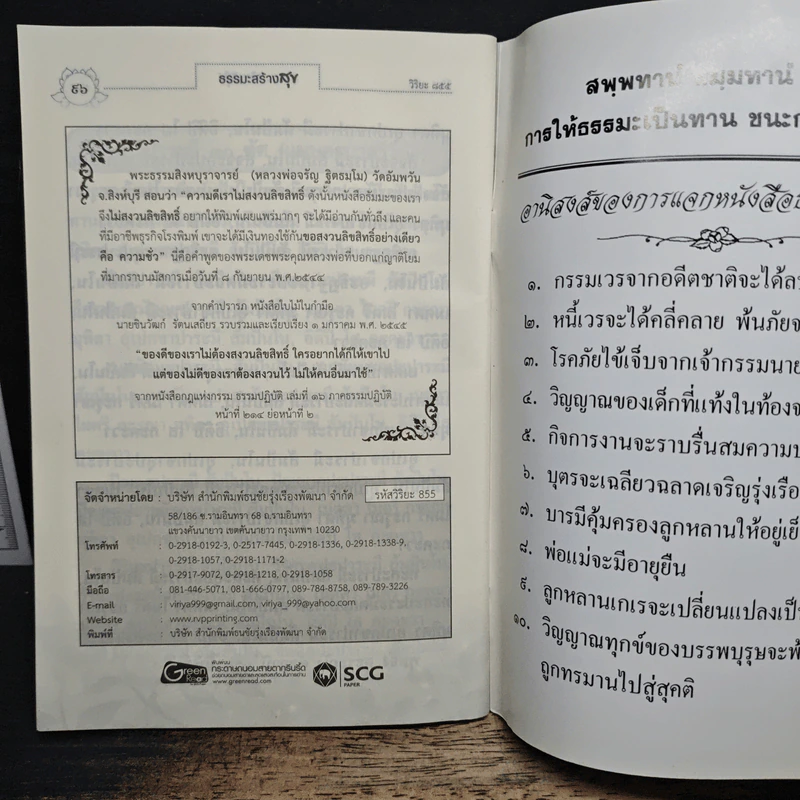 ๕๖
ธรรมะสร้างสุข
วิริยะ ๘๕๕
พระธรรมสิงหบุราจารย์ (หลวงพ่อจรัญ ฐิตธมฺโม) วัดอัมพวัน
จ.สิงห์บุรี สอนว่า "ความดีเราไม่สงวนลิขสิทธิ์ ดังนั้นหนังสือธัมมะของเรา
จึงไม่สงวนลิขสิทธิ์ อยากให้พิมพ์เผยแพร่มากๆ จะได้มีอ่านกันทั่วถึง และคน
ที่มีอาชีพธุรกิจโรงพิมพ์ เขาจะได้มีเงินทองใช้กันขอสงวนลิขสิทธิ์อย่างเดียว
คือ ความชั่ว" นี่คือคำพูดของพระเดชพระคุณหลวงพ่อที่บอกแก่ญาติโยม
ที่มากราบนมัสการเมื่อวันที่ ๘ กันยายน พ.ศ.๒๕๔๔
จากคำปรารภ หนังสือใบไม้ในกำมือ
นายชินวัฒก์ รัตนเสถียร รวบรวมและเรียบเรียง ๑ มกราคม พ.ศ. ๒๕๔๕
"ของดีของเราไม่ต้องสงวนลิขสิทธิ์ ใครอยากได้ก็ให้เขาไป
แต่ของไม่ดีของเราต้องสงวนไว้ ไม่ให้คนอื่นมาใช้"
จากหนังสือกฎแห่งกรรม ธรรมปฏิบัติ เล่มที่ ๑๖ ภาคธรรมปฏิบัติ
หน้าที่ ๒๑๔ ย่อหน้าที่ ๒
จัดจำหน่ายโดย : บริษัท สำนักพิมพ์ธนชัยรุ่งเรืองพัฒนา จำกัด รหัสวิริยะ 855
58/186 ซ.รามอินทรา 68 ถ.รามอินทรา
แขวงคันนายาว เขตคันนายาว กรุงเทพฯ 10230
โทรศัพท์ : 0-2918-0192-3, 0-2517-7445, 0-2918-1336, 0-2918-1338-9,
0-2918-1057, 0-2918-1171-2
โทรสาร : 0-2917-9072, 0-2918-1218, 0-2918-1058
มือถือ : 081-446-5071, 081-666-0797, 089-784-8758, 089-789-3226
E-mail : viriya999@gmail.com, viriya_999@yahoo.com
Website : www.rvpprinting.com
พิมพ์ที่ : บริษัท สำนักพิมพ์ธนชัยรุ่งเรืองพัฒนา จำกัด
Green Read
พิมพ์บน
กระดาษถนอมสายตากรีนรี้ด
www.greenread.com
SCG
PAPER
สพฺพทานํ ธมฺมทานํ
การให้ธรรมะเป็นทาน ชนะก
อานิสงส์ของการแจกหนังสือธ
๑. กรรมเวรจากอดีตชาติจะได้ล
๒. หนี้เวรจะได้คลี่คลาย พ้นภัยจ
๓. โรคภัยไข้เจ็บจากเจ้ากรรมนาย
๔. วิญญาณของเด็กที่แท้งในท้องจ
๕. กิจการงานจะราบรื่นสมความป
๖. บุตรจะเฉลียวฉลาดเจริญรุ่งเรือ
๗. บารมีคุ้มครองลูกหลานให้อยู่เย็
๘. พ่อแม่จะมีอายุยืน
๙. ลูกหลานเกเรจะเปลี่ยนแปลงเป็
๑๐. วิญญาณทุกข์ของบรรพบุรุษจะพ้
ถูกทรมานไปสู่สุคติ